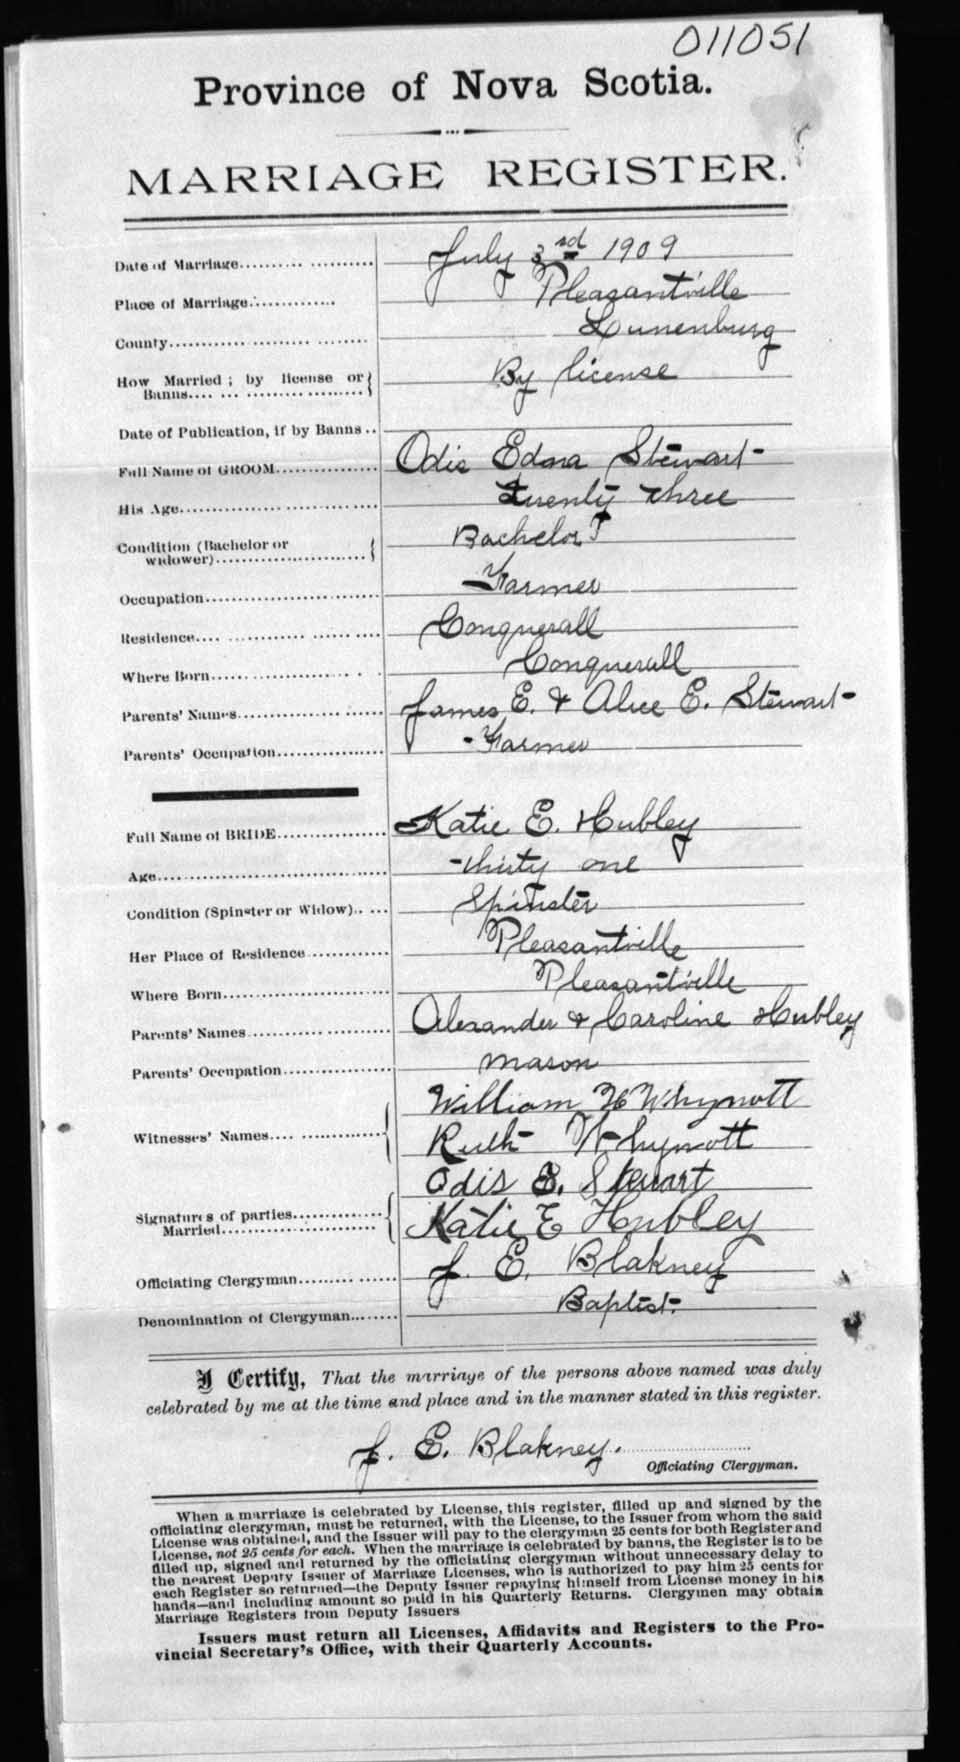 011051
Province of Nova Scotia.
MARRIAGE REGISTER.
Date of Marriage.......... .......... July 3rd 1909
Place of Marriage............. Pleasantville
County........... .......... ........ Lunenburg
How Married; by license or Banns.... ... .......... ......... By license
Date of Publication, if by Banns ..
Full Name of GROOM................ Odis Edna Stewart
His Age........................... twenty three
Condition (Bachelor or widower)........................ Bachelor
Occupation........................... Farmer
Residence.... ........... ...... .... Conquerall
Where Born................... . . Conquerall
Parents' Names.................. ...... James E. & Alice E. Stewart
Parents' Occupation................. Farmer
Full Name of BRIDE................. Katie E. Hubley
Age.................................... thirty one
Condition (Spinster or Widow).. .... Spinster
Her Place of Residence............. Pleasantville
Where Born.......................... Pleasantville
Parents' Names............ .......... Alexander & Caroline Hubley
Parents' Occupation................. mason
Witnesses' Names.... ............... William H Whynott
Ruth Whynott
Signatures of parties Married...................... Odis E. Stewart
Katie E Hubley
Officiating Clergyman......... ...... J. E. Blakney
Denomination of Clergyman......... Baptist
I Certify, That the marriage of the persons above named was duly
celebrated by me at the time and place and in the manner stated in this register.
J. E. Blakney.
Officiating Clergyman.
When a marriage is celebrated by License, this register, filled up and signed by the
officiating clergyman, must be returned, with the License, to the Issuer from whom the said
License was obtained, and the Issuer will pay to the clergyman 25 cents for both Register and
License, not 25 cents for each. When the marriage is celebrated by banns, the Register is to be
filled up, signed and returned by the officiating clergyman without unnecessary delay to
the nearest Deputy Issuer of Marriage Licenses, who is authorized to pay him 25 cents for
each Register so returned—the Deputy Issuer repaying himself from License money in his
hands—and including amount so paid in his Quarterly Returns. Clergymen may obtain
Marriage Registers from Deputy Issuers
Issuers must return all Licenses, Affidavits and Registers to the Pro-
vincial Secretary's Office, with their Quarterly Accounts.